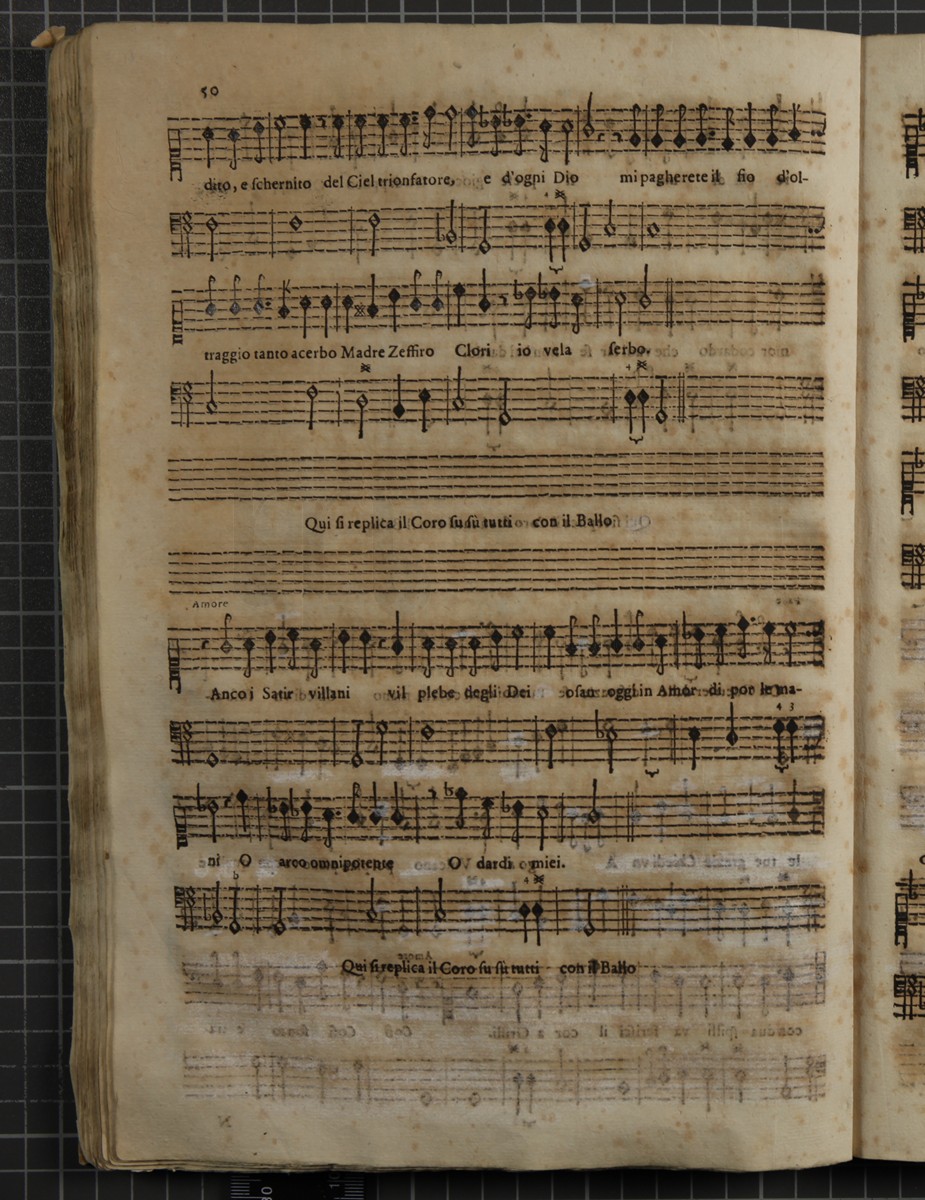 50
dito, e schernito del Ciel trionfatore, e d'ogni Dio mi pagherete il fio d'ol-
traggio tanto acerbo Madre Zeffiro Clori io vela serbo.
Qui si replica il Coro su sù tutti con il Ballo
Amore
Anco i Satir villani vil plebe degli Dei osan oggi in Amor di por le ma-
4 3
ni O arco omnipotente O dardi miei.
Qui si replica il Coro su sù tutti con il Ballo